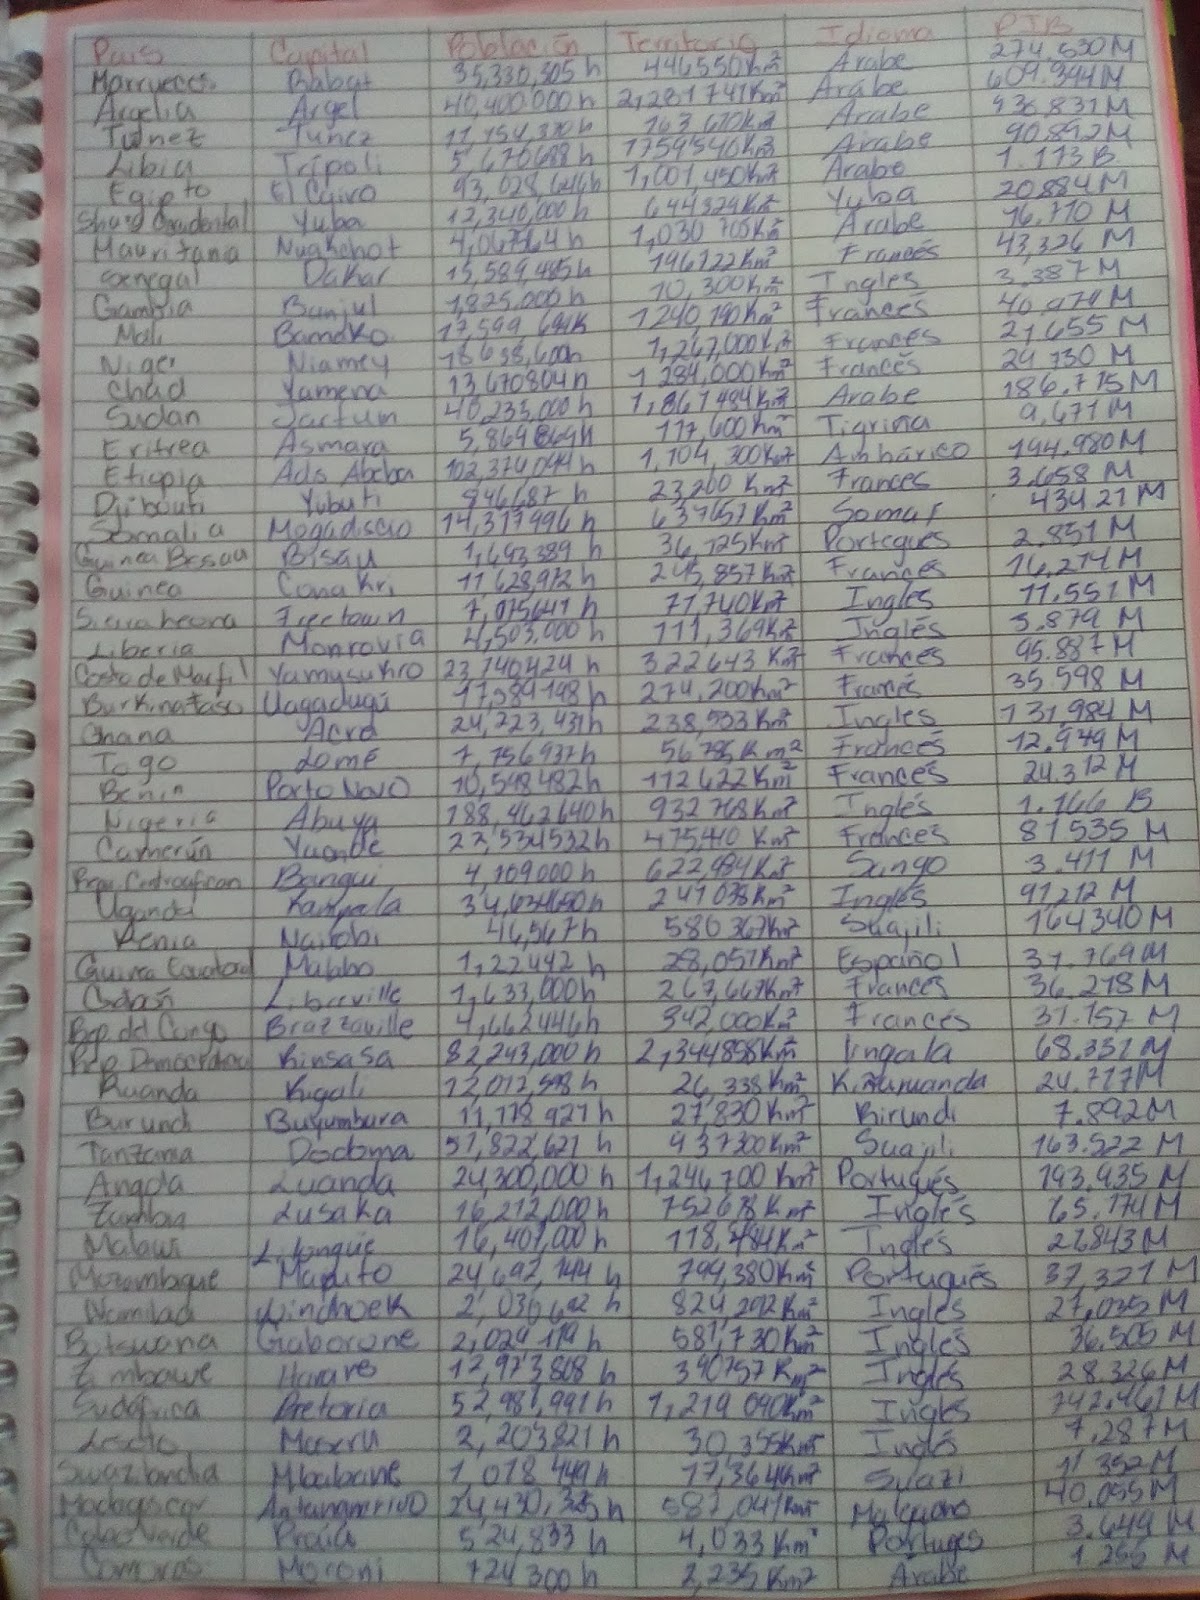 País Capital Población Territorio Idioma PIB
Marruecos Babat 35,330,305 h 446550Km² Arabe 274,530 M
Argelia Argel 40,400.000 h 2,281741Km² Arabe 609.344M
Tunez Tunez 11,154,370h 163,610Km² Arabe 136.831M
Libia Trípoli 5,670688 h 1759540Km² Arabe 90.892M
Egipto El Cairo 93,028,646h 1,001,450Km² Arabe 1.173B
Yuba 12,340,000 h 644329Km² Yuba 20884 M
Mauritania Nuakchot 4,067564 h 1,030 700Km² Arabe 16.710 M
Senegal Dakar 15,589,485h 196722Km² Francés 43,326 M
Gambia Banjul 1,825.000 h 10,300Km² Ingles 3.387 M
Mali Bamako 17,599,694h 1240,190Km² Francés 40.974M
Niger Niamey 18 638,600h 1,267,000Km² Francés 21,655 M
Chad Yamena 13,670804 h 1 284,000Km² Francés 29 730 M
Sudan Jartum 40,235,000h 1,861484Km² Arabe 186.715M
Eritrea Asmara 5,869 869h 117,600Km² Tigriña 9,671M
Etiopia Adis Abeba 102,374,044h 1,104,300Km² Amhárico 194.980M
Djibouti Yubuti 846,687 h 23,200 Km² Frances 3.658 M
Somalia Mogadiscio 14,317996 h 637657Km² Somaf 43421 M
Guinea Bissau Bisáu 1,693,389 h 36,125Km² Portegués 2.851 M
Guinea Conakri 11 628,972 h 245,857Km² Francés 16,214M
Sierra Leona Freetown 7,075641 h 71,740Km² Inglés 11.551 M
Liberia Monrovia 4,503,000 h 111,369Km² Inglés 3.879 M
Costa de Marfil Yamusukro 23,740424 h 322643 Km² Francés 95.887 M
Burkina Faso Uagadugú 17,589198 h 274,200Km² Francés 35.598 M
Ghana Acra 24,223,431h 238,533 Km² Ingles 131984 M
Togo Lomé 7,756937h 56785Km² Francés 12.949 M
Benin Porto Novo 10,598482h 112622Km² Francés 24.312 M
Nigeria Abuya 188,462640 h 932768Km² Inglés 1.166 B
Camerún Yaunde 22,534532h 475440 Km² Francés 81535 M
Rep. Centroafrican Bangui 4,709000 h 622,984Km² Sango 3.411 M
Uganda Kampala 34,634650h 241038Km² Inglés 91,212 M
Kenia Nairobi 46,567 h 580 367Km² Suajili 164340M
Guinea Ecuatorial Malabo 1,22442 h 28,051Km² Español 31.769M
Gabón Libreville 1,633,000h 267,667Km² Francés 36.218 M
Rep. del Congo Brazzaville 4,662446h 342,000Km² Francés 31.157 M
Kinsasa 82,243,000 h 2,344858Km² lingala 68.331 M
Ruanda Kigali 12,012,598 h 26,338Km² 24.717M
Burundi Buyumbura 11,178 921 h 27,830 Km² Birundi 7.892M
Tanzania Dodoma 51,822,621 h 937300Km² Suajili 163.522 M
Angola Luanda 24,300,000 h 1,246,700 Km² Portugués 193,935 M
Zambia Lusaka 16,212,000h 752618 Km² Inglés 65,174M
Malawi Lilongüe 16,407,000h 118,484Km² Inglés 21843 M
Mozambique Maputo 24,692,144 h 799,380Km² Portugués 37,321 M
Windhoek 2,030,692 h 824,292Km² Ingles 27,035 M
Botswana Gaborone 2,024 119 h 581,730Km² Inglés 36,505 M
Zimbawe Harare 12,973808 h 390757 Km² Inglés 28.326M
Sudáfrica Pretoria 52,981,991h 1,219 090Km² Inglés 742,461 M
Maseru 2,203821h 30,355Km² Inglés 7,287 M
Swazilandia Mbabane 1,018,449h 17,364Km² Suazi 11 352 M
Madagascar Antananarivo 24,430,325h 587,041Km² 40,055 M
Cabo Verde Praia 524,833 h 4,033 Km² Portuges 3.649 M
Comoras Moroni 724 300 h 2,235 Km² Arabe 1.255 M